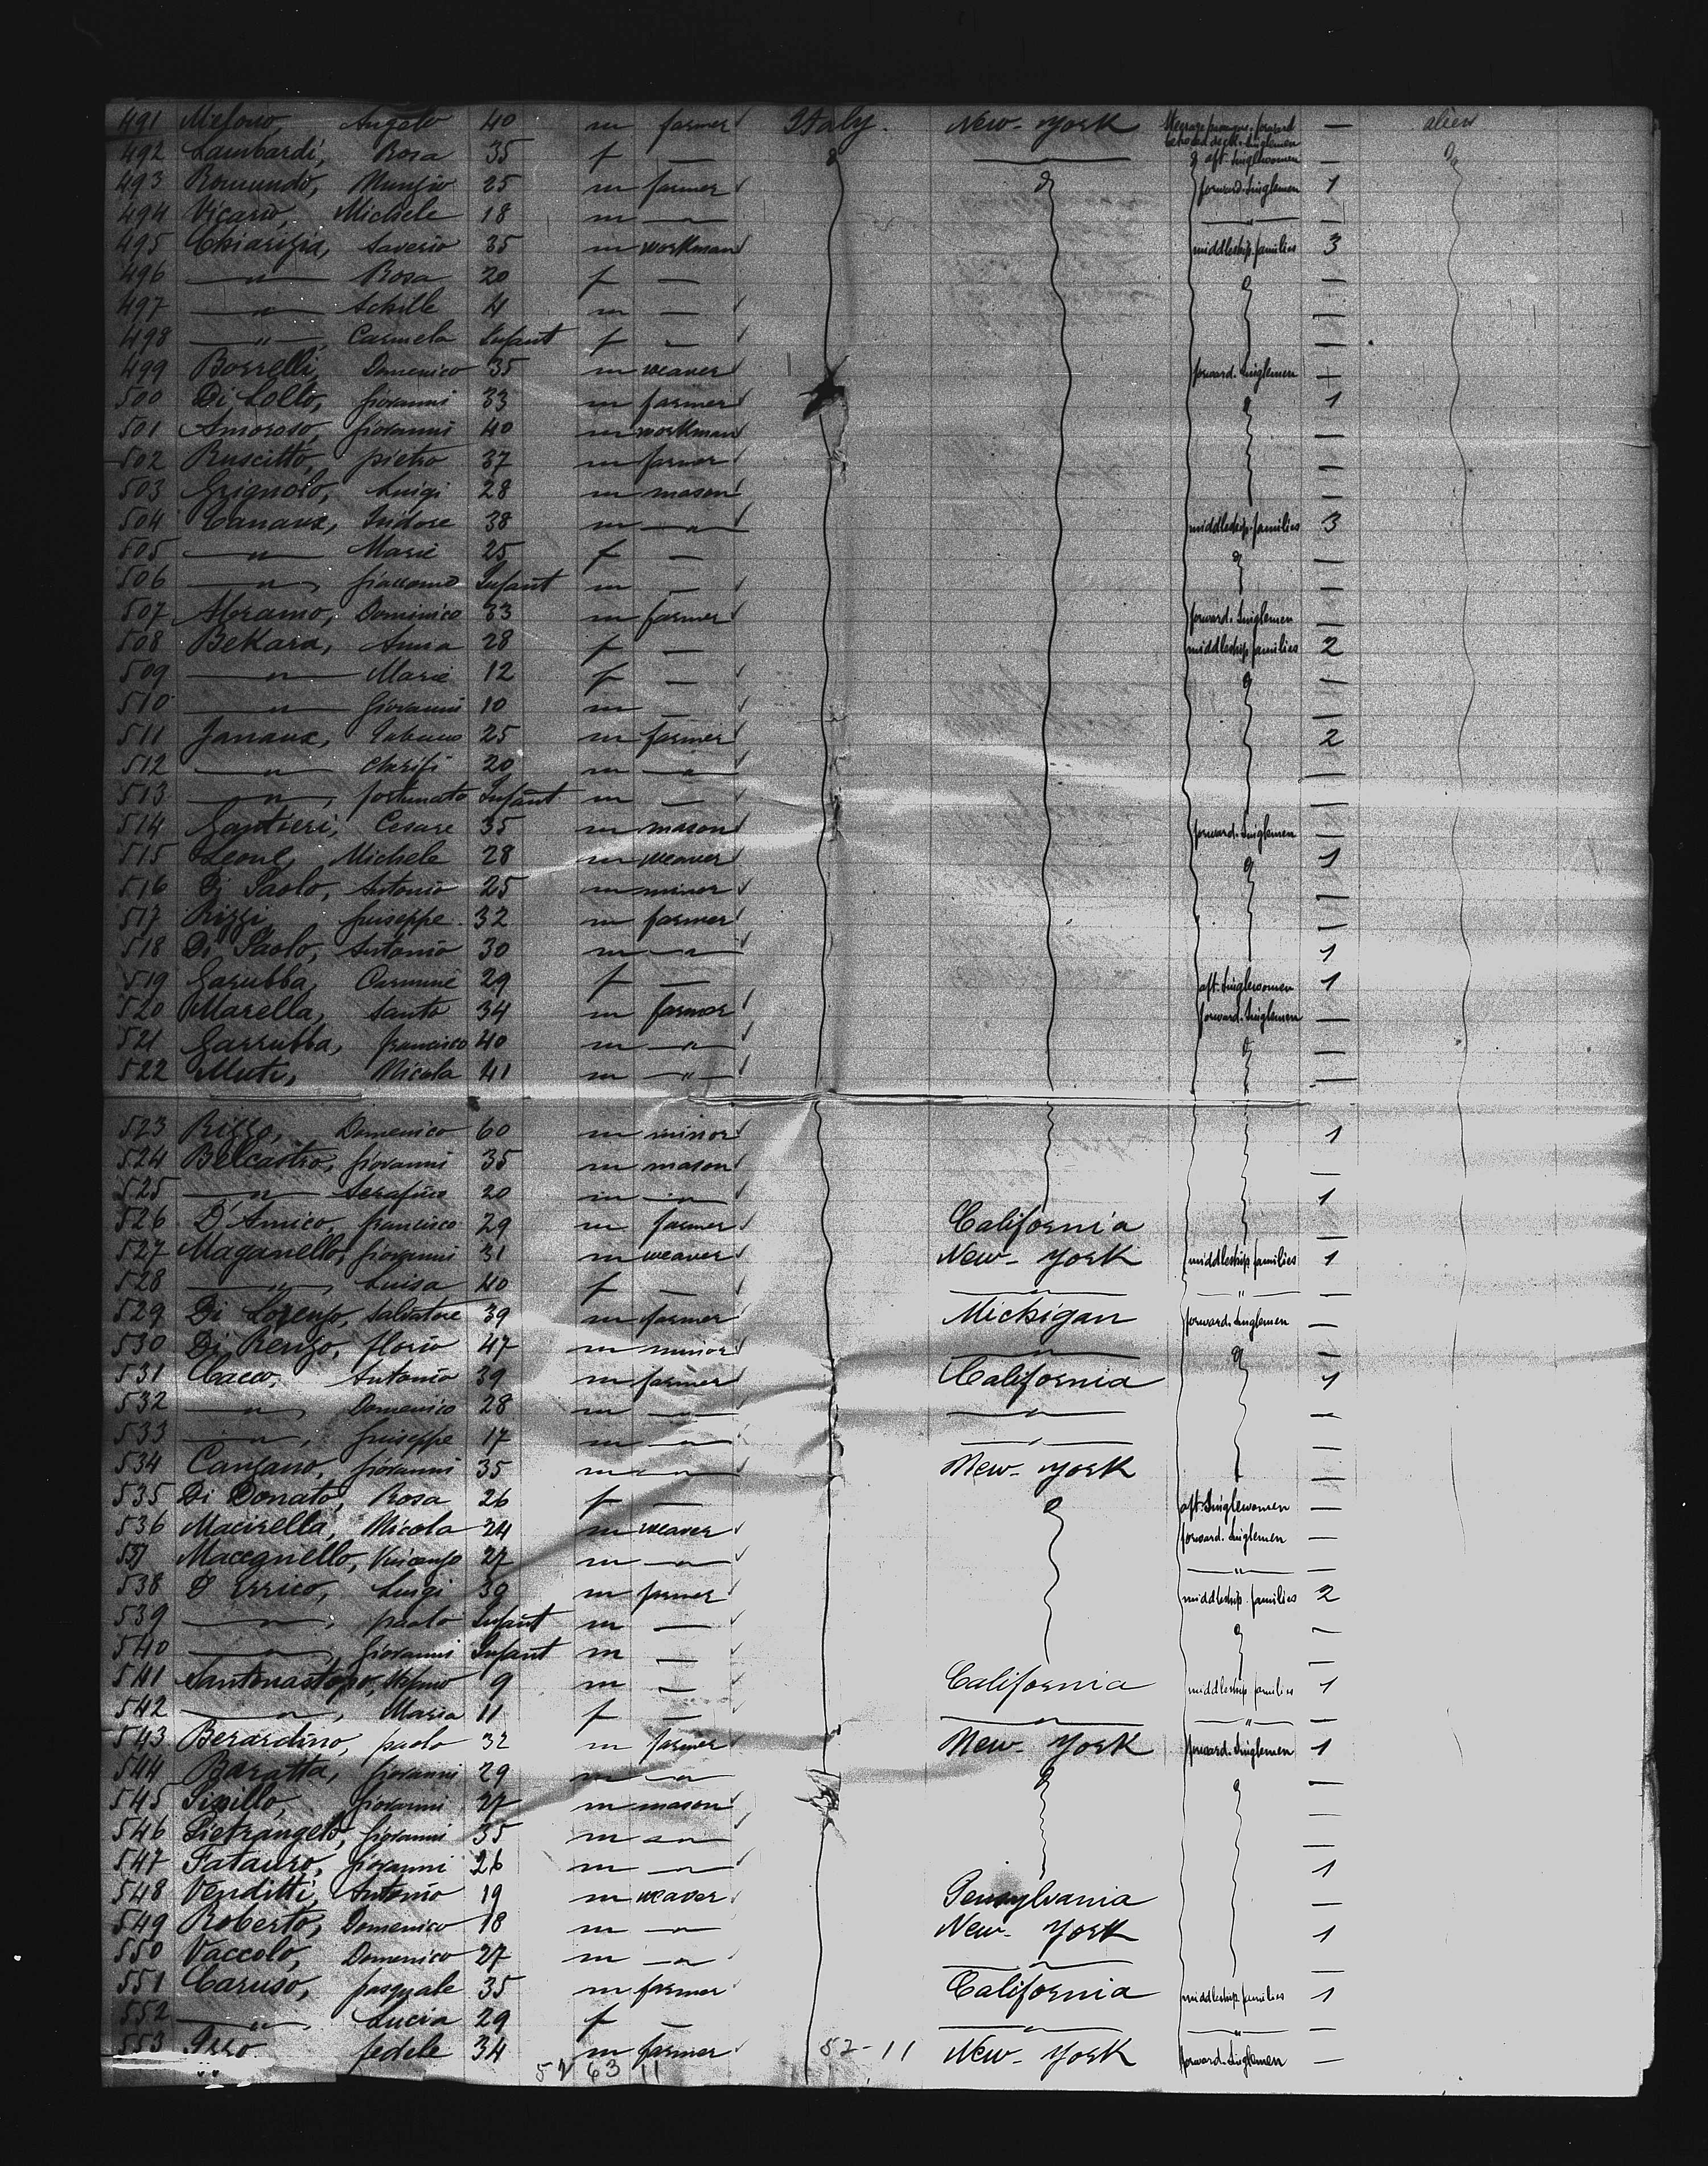 491 Angelo 40 m farmer Italy. New-York Steerage forward singlemen — alien
492 Lambardi, Rosa 35 f — " — aft. Singlewomen — "
493 Romundo, Nunzio 25 m farmer " forward. Singlemen 1
494 Vicario, Michele 18 m —"— —"—
495 Saverio 35 m workman middleship. families 3
496 —"— Rosa 20 f — " —
497 —"— Achille 4 m — —
498 —"—, Carmela Infant f — —
499 Borrelli, Domenico 35 m weaver forward. Singlemen —
500 Di Lollo, Giovanni 33 m farmer " 1
501 Amoroso, Giovanni 40 m workman —
502 Ruscitto, pietro 37 m farmer —
503 Grignolo, Luigi 28 m mason —
504 Canaux, Isidore 38 m —"— middleship. families 3
505 —"— Marie 25 f — " —
506 —"—, Giaccomo Infant m — —
507 Abramo, Dominico 33 m farmer forward. Singlemen —
508 Bekara, Anna 28 f — middleship families 2
509 —"— Marie 12 f — " —
510 —"— Giovanni 10 m — —
511 25 m farmer 2
512 —"— 20 m —"— —
513 —"—, fortunato Infant m — —
514 Gantieri, Cesare 35 m mason forward. Singlemen —
515 Leone, Michele 28 m weaver " 1
516 Di Paolo, Antonio 25 m miner —
517 Rizzi, Giuseppe 32 m farmer —
518 Di Paolo, Antonio 30 m —"— 1
519 Garubba, Carmine 29 f — aft. Singlewomen 1
520 Marella, Santo 34 m farmer forward. Singlemen —
521 Garrubba, francisco 40 m —"— " —
522 Muti, Nicola 41 m —"— —
523 Rizzo, Domenico 60 m minor 1
524 Belcastro, Giovanni 35 m mason —
525 —"— Serafino 20 m —"— 1
526 D'Amico, francisco 29 m farmer California —
527 Maganello, Giovanni 31 m weaver New-York middleship families 1
528 —"—, Luisa 40 f — —"— —"— —
529 Di Lorenzo, Salvatore 39 m farmer Michigan forward. Singlemen —
530 Di Renzo, florio 47 m minor —"— " —
531 Cacco, Antonio 39 m farmer California 1
532 —"—, Domenico 28 m —"— —"— —
533 —"—, Giuseppe 17 m —"— —"— —
534 Canzano, Giovanni 35 m —"— New-York —
535 Di Donato, Rosa 26 f — " aft. Singlewomen —
536 Macirella, Nicola 24 m weaver forward. Singlemen —
537 Macegnello, Vincenzo 27 m —"— —"— —
538 D'Errico, Luigi 39 m farmer middleship families 2
539 —"—, paolo Infant m — " —
540 —"—, Giovanni Infant m — —
541 9 m — California middleship families 1
542 —"—, Maria 11 f — —"— —"— —
543 Berardino, paolo 32 m farmer New-York forward. Singlemen 1
544 Baratta, Giovanni 29 m —"— " " —
545 Giovanni 27 m mason —
546 Pietrangelo, Giovanni 35 m —"— —
547 Fatauro, Giovanni 26 m —"— 1
548 Venditti, Antonio 19 m weaver Pensylvania —
549 Roberto, Domenico 18 m —"— New-York 1
550 Vaccolo, Domenico 27 m —"— —"—
551 Caruso, pasquale 35 m farmer California middleship families 1
552 —"—, Lucia 29 f — —"— —"— —
553 fedele 34 m farmer 52-11 New-York forward. Singlemen —
52 63 11